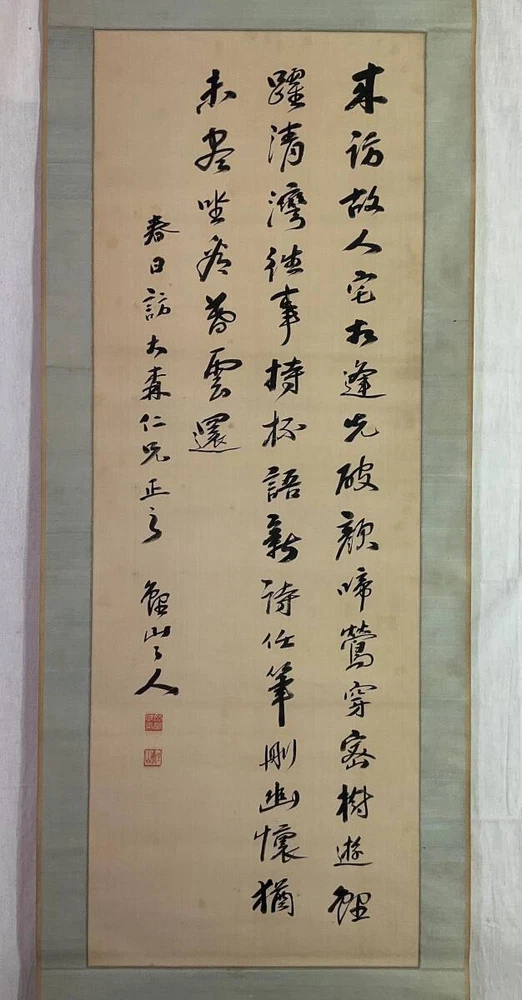 来訪故人宅相逢先破顔啼鶯穿密樹遊鯉
躍清灣往事持杯語新詩任筆刪幽懷猶
未盡坐看暮雲還
春日訪大森仁兄正之 山人